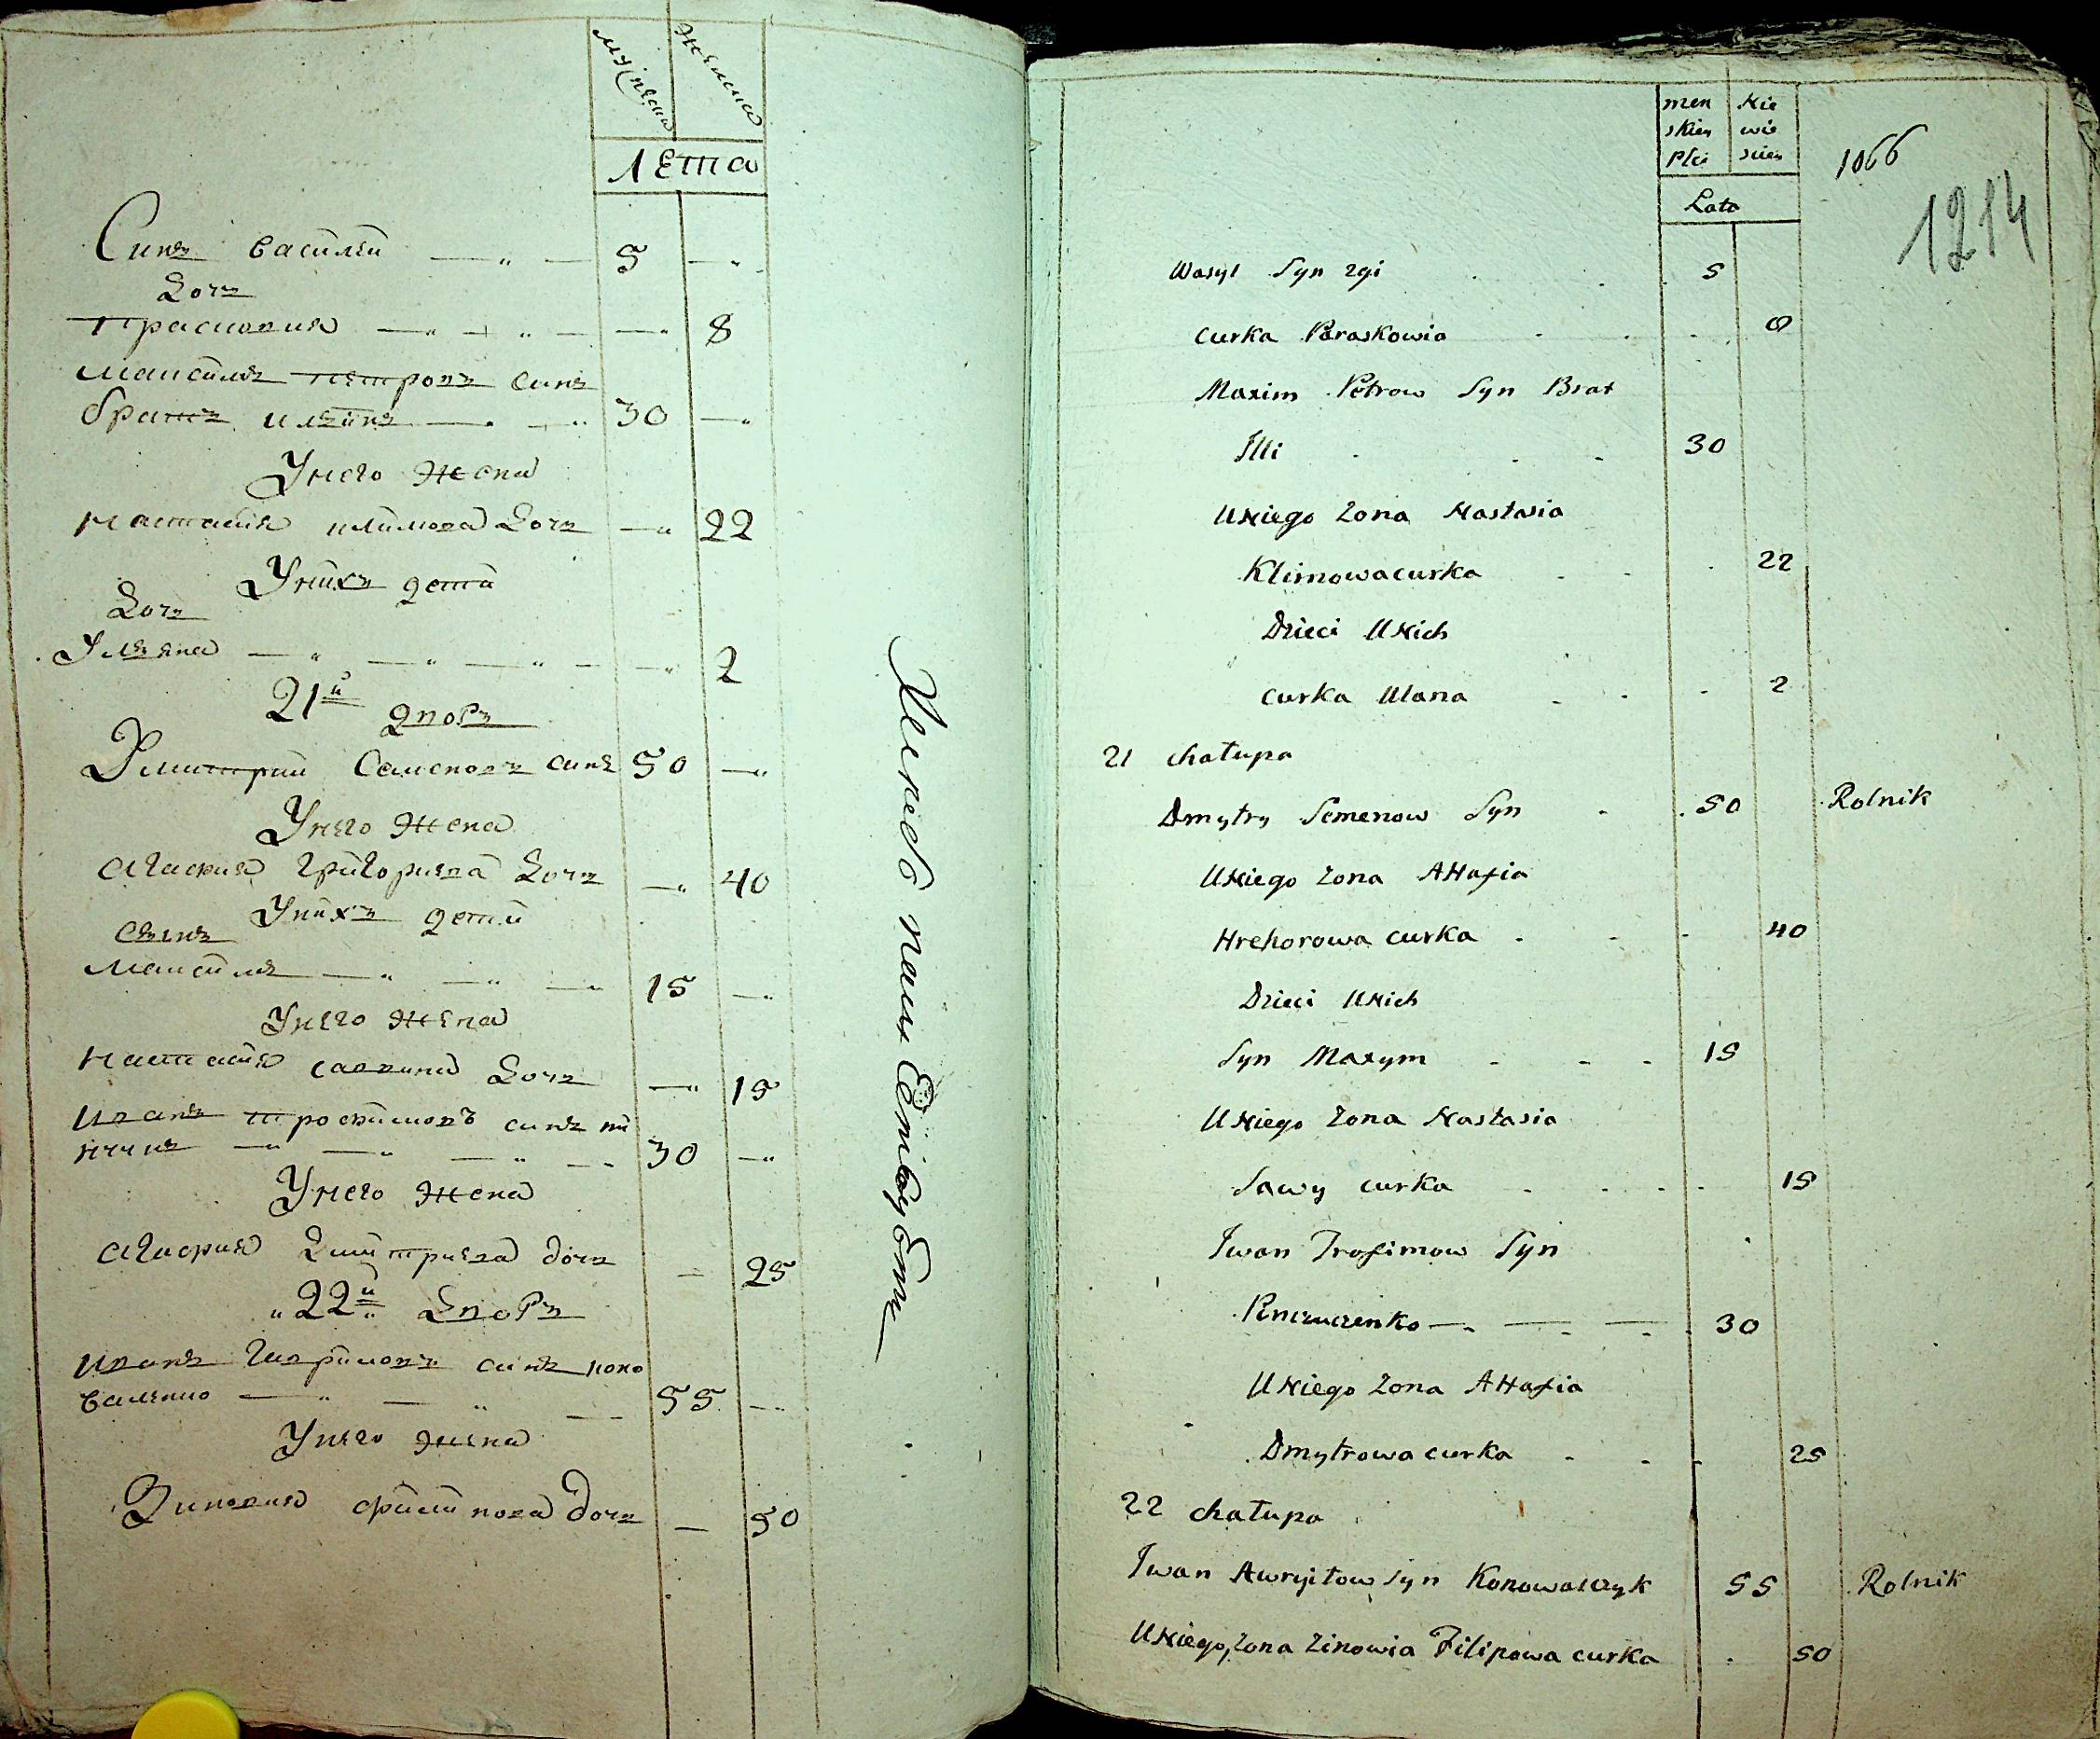 мужеска
женска
лета
Синъ василей — „ — 5 — „
Дочь
Прасковия — „ — „ — — „ 8
Максимъ Петровъ синъ
братъ илѣинъ — „ — „ 30 — „
Унего жена
настасия климова Дочь — „ 22
Унихъ дети
Дочь
Улияна — „ — „ — „ — — „ 2
21й дворъ
Дмитрий Семеновъ синъ 50 — „
Унего жена
агафия григориева Дочь — „ 40
Унихъ дети
Сынъ
Максимъ — „ — „ — „ 15 — „
Унего жена
настасия савина Дочь — „ 15
иванъ трофимовъ синъ
— „ — „ — „ 30 — „
Унего жена
агафия Дмитриева дочь — 25
„ 22й „ Дворъ
иванъ гавриловъ синъ коно
валенко — „ — „ — 55 — „
Унего жена
Зиновия филипова дочь — 50
men skiey Płci
Nie wie sciey
Lata
1066
1214
Wasyl Syn zgi 5
curka Paraskowia 8
Maxim Petrow Syn Brat
Illi 30
Uniego Zona Nastasia
Klimowa curka 22
Dzieci Unich
curka Ulana 2
21 chałupa
Dmytry Semenow Syn 50 Rolnik
Uniego Zona AHafia
Hrehorowa curka 40
Dzieci Unich
Syn Maxym 15
Uniego Zona Nastasia
Sawy curka 15
Iwan Trofimow Syn
— „ — „ — „ 30
Uniego Zona AHafia
Dmytrowa curka 25
22 chałupa
Iwan Syn Konowalczyk 55 Rolnik
Uniego, Zona Zinowia Filipowa curka 50